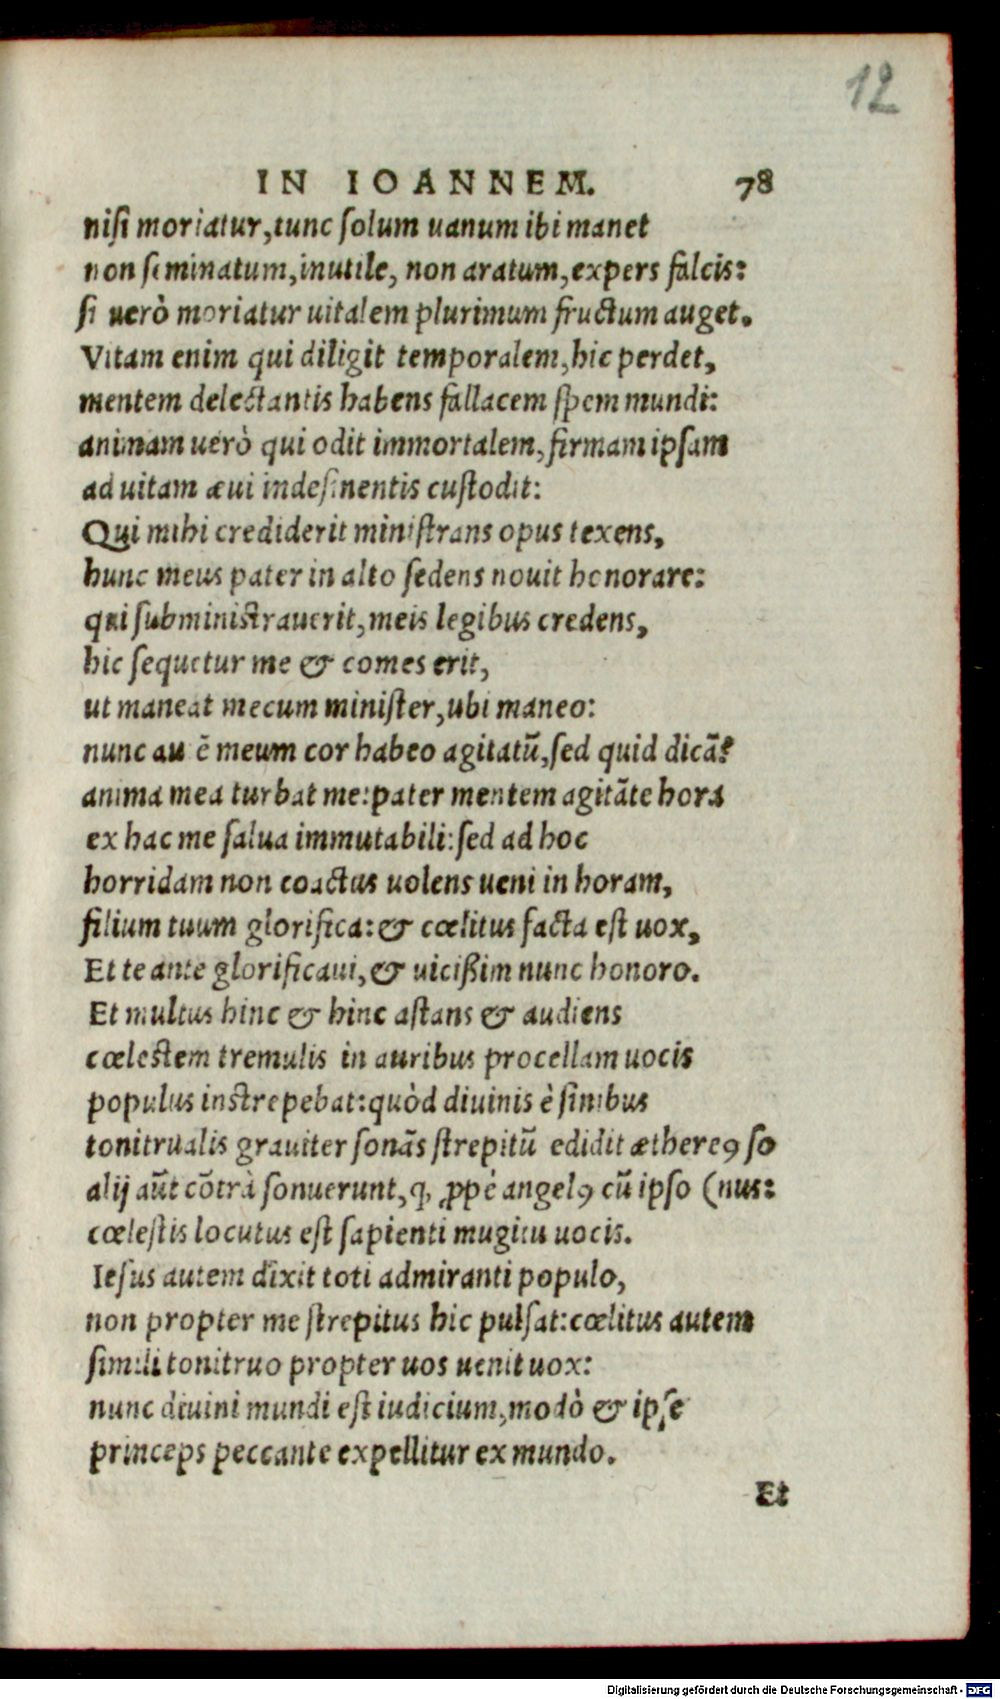 12
IN IOANNEM. 78
nisi moriatur, tunc solum uanum ibi manet
non seminatum, inutile, non aratum, expers falcis:
si uerò moriatur uitalem plurimum fructum auget.
Vitam enim qui diligit temporalem, hic perdet,
mentem delectantis habens fallacem spem mundi:
animam uerò qui odit immortalem, firmam ipsam
ad uitam æui indesinentis custodit:
Qui mihi crediderit ministrans opus texens,
hunc meus pater in alto sedens nouit honorare:
qui subministrauerit, meis legibus credens,
hic sequetur me & comes erit,
ut maneat mecum minister, ubi maneo:
nunc au ē meum cor habeo agitatū, sed quid dicā?
anima mea turbat me: pater mentem agitāte hora
ex hac me salua immutabili: sed ad hoc
horridam non coactus uolens ueni in horam,
filium tuum glorifica: & cœlitus facta est uox,
Et te ante glorificaui, & uicißim nunc honoro.
Et multus hinc & hinc astans & audiens
cœlestem tremulis in auribus procellam uocis
populus instrepebat: quòd diuinis è sinibus
tonitrualis grauiter sonās strepitū edidit æthereꝯ so
alij aūt cōtrà sonuerunt, ꝙ ꝓpè angelꝯ cū ipso (nus:
cœlestis locutus est sapienti mugitu uocis.
Iesus autem dixit toti admiranti populo,
non propter me strepitus hic pulsat: cœlitus autem
simili tonitruo propter uos uenit uox:
nunc diuini mundi est iudicium, modò & ipse
princeps peccante expellitur ex mundo.
Et
Digitalisierung gefördert durch die Deutsche Forschungsgemeinschaft - DFG